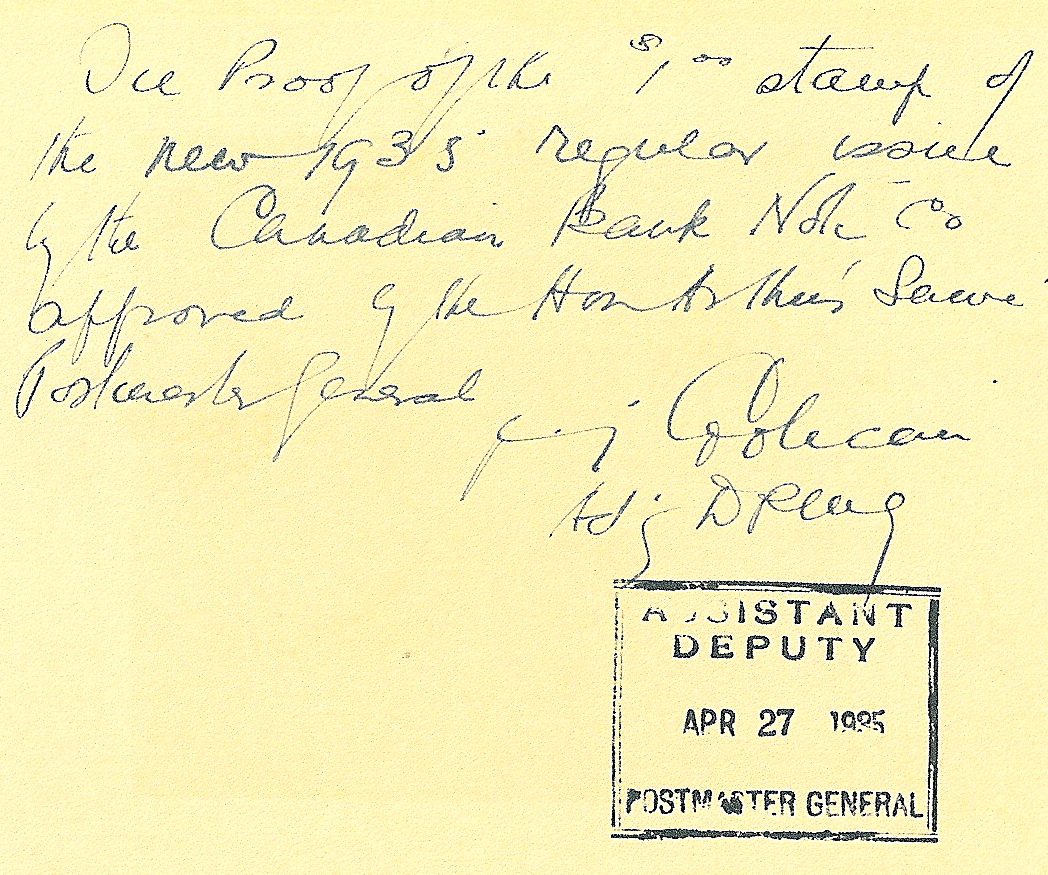 Die Proof of the $1.00 stamp of
the new 1935 regular issue
by the Canadian Bank Note Co
approved by the Hon Arthur Sauvé
Postmaster General
J. A. Coolican
Adg DPMG
ASSISTANT
DEPUTY
APR 27 1935
POSTMASTER GENERAL